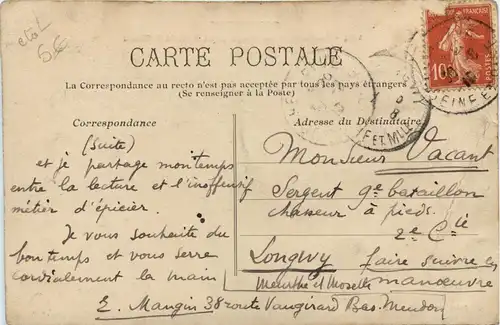 etol
5€
FRANÇAISE
10
POSTES
CARTE POSTALE
La Correspondance au recto n'est pas acceptée par tous les pays étrangers
(Se renseigner à la Poste)
Correspondance
(suite)
et je partage mon temps
entre la lecture et l'inoffensif
métier d'épicier.
Je vous souhaite du
bon temps et vous serre
cordialement la main
E. Mangin 38 route Vaugirard Bas-Meudon
Adresse du Destinataire
Monsieur Vacant
Sergent 9e bataillon
chasseur à pieds.
2e Cie
Longwy faire suivre en
Meurthe et Moselle manœuvre